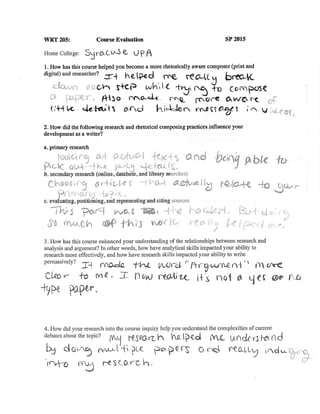 WRT 205: Course Evaluation SP 2015
Home College: Syracuse UPA
1. How has this course helped you become a more rhetorically aware composer (print and
digital) and researcher? It helped me really break
down each step while trying to compose
a paper. Also made me more aware of
little details and hidden messages in videos.
2. How did the following research and rhetorical composing practices influence your
development as a writer?
a. primary research
looking at actual texts and being able to
pick out the details.
b. secondary research (online, database, and library searches)
Choosing articles that actually relate to your
primary topic.
c. evaluating, positioning, and representing and citing sources
This part was the hardest. But doing
so much of this work really helped me.
3. How has this course enhanced your understanding of the relationships between research and
analysis and argument? In other words, how have analytical skills impacted your ability to
research more effectively, and how have research skills impacted your ability to write
persuasively? It made the word "Argument" more
clear to me. I now realize it's not a yes or no
type paper.
4. How did your research into the course inquiry help you understand the complexities of current
debates about the topic? My research helped me understand
by doing multiple papers and really indulging
into my research.